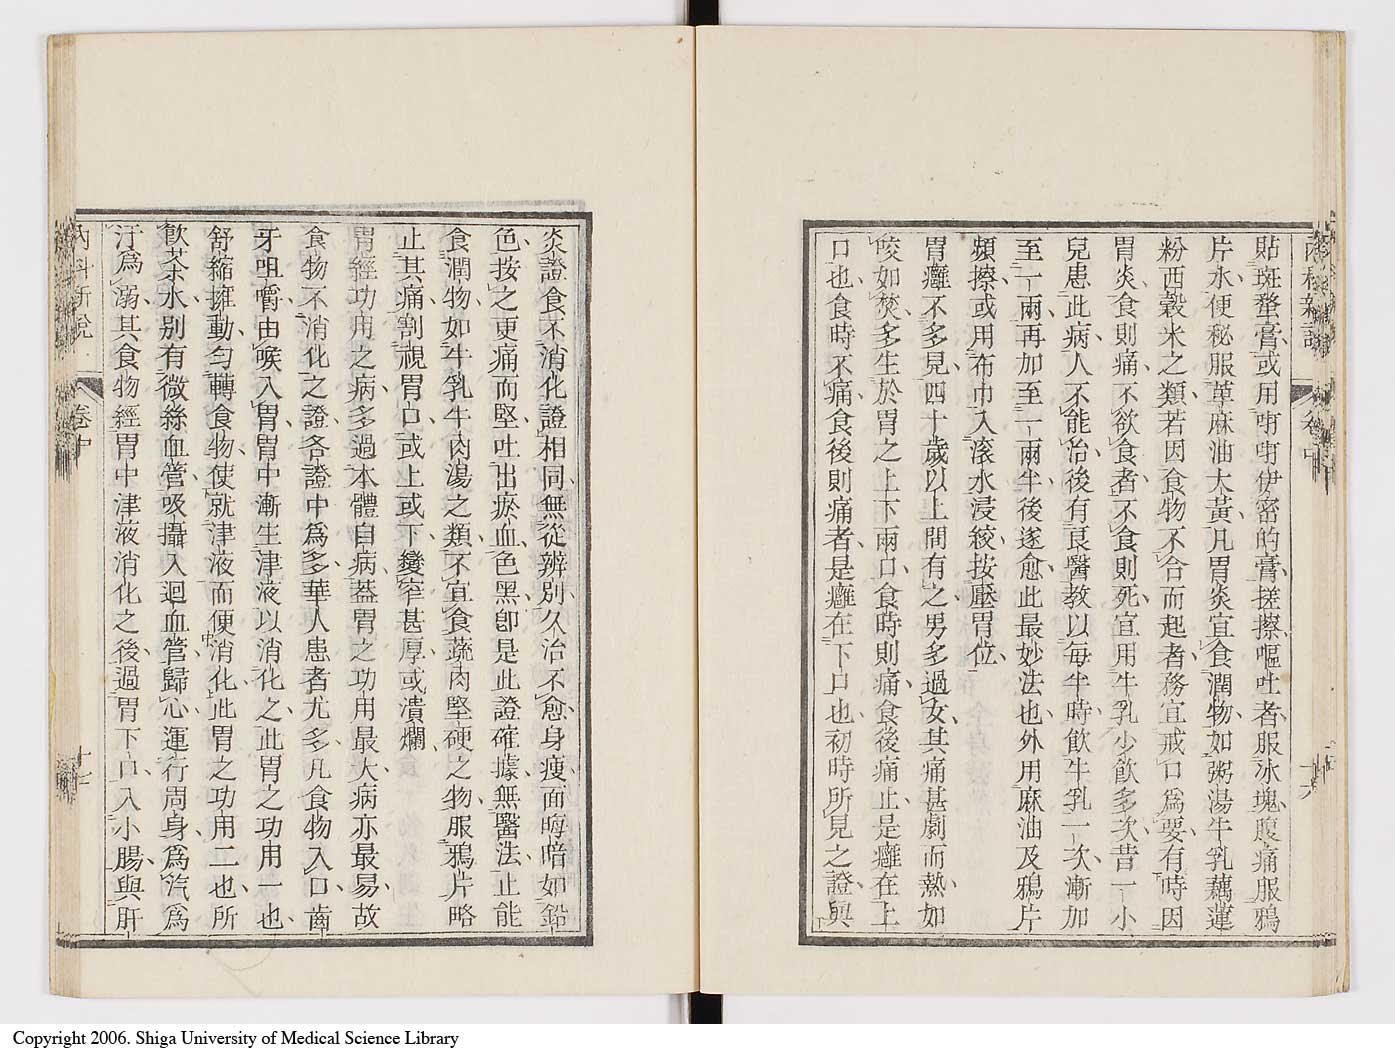 內科新說 卷中 十六
貼斑蝥膏或用啲啲伊密的膏搓擦嘔吐者服冰塊腹痛服鴉
片水便秘服萆麻油大黃凡胃炎宜食潤物如粥湯牛乳藕蓮
粉西穀米之類若因食物不合而起者務宜戒口為要有時因
胃炎食則痛不欲食者不食則死宜用牛乳少飲多次昔一小
兒患此病人不能治後有良醫教以每半時飲牛乳一次漸加
至一兩再加至一兩半後遂愈此最妙法也外用麻油及鴉片
頻擦或用布巾入滾水浸絞按壓胃位
胃癰不多見四十歲以上間有之男多過女其痛甚劇而熱如
咬如焚多生於胃之上下兩口食時則痛食後痛止是癰在上
口也食時不痛食後則痛者是癰在下口也初時所見之證與
炎證食不消化證相同無從辨別久治不愈身瘦面晦暗如鉛
色按之更痛而堅吐出瘀血色黑卽是此證確據無醫法止能
食潤物如牛乳牛肉湯之類不宜食蔬肉堅硬之物服鴉片略
止其痛割視胃口或上或下變窄甚厚或潰爛
胃經功用之病多過本體自病蓋胃之功用最大病亦最易故
食物不消化之證各證中為多華人患者尤多凡食物入口齒
牙咀嚼由喉入胃胃中漸生津液以消化之此胃之功用一也
舒縮擁動勻轉食物使就津液而便消化此胃之功用二也所
飲茶水別有微絲血管吸攝入迴血管歸心運行周身為汽為
汗為溺其食物經胃中津液消化之後過胃下口入小腸與肝
內科新說 卷中 十七
Copyright 2006. Shiga University of Medical Science Library